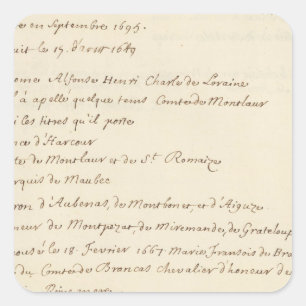 e en Septembre 1695.
ait le 15 d'Aoust 1649
omme Alfonse Henri Charle de Loraine
à apellé quelque tems Comte de Montlaur
i les titres qu'il porte
nce d'Harcour
te de Montlaur et de St. Romaize
rquis de Maubec
ron d'Aubenas, de Montbonet, et d'Aiguze
neur de Montpezat, de Miremande, de Grateloup
ousé le 18. Fevrier 1667 Marie Fransoise de Bra
du Comte de Brancas Chevalier d'honeur de
Reine mere